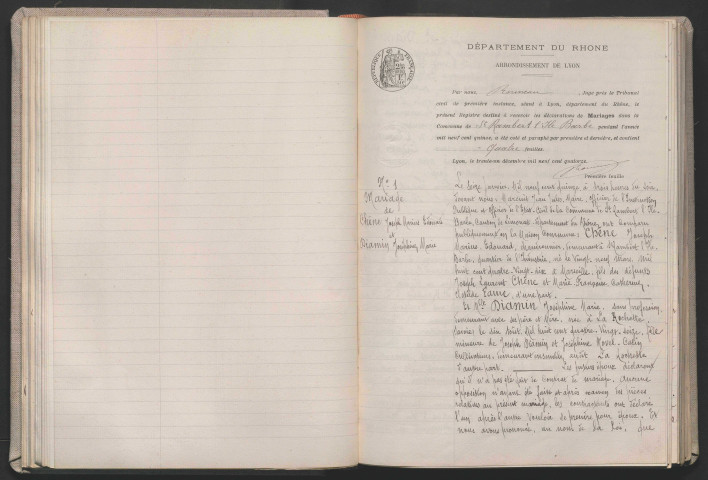 DÉPARTEMENT DU RHONE
ARRONDISSEMENT DE LYON
Par nous, Juge près le Tribunal
civil de première instance, séant à Lyon, département du Rhône, le
présent Registre destiné à recevoir les déclarations de Mariages dans la
Commune de St Rambert l'Ile Barbe pendant l'année
mil neuf cent quinze, a été coté et paraphé par première et dernière, et contient
Quatre feuilles.
Lyon, le trois décembre mil neuf cent quatorze.
Première feuille
No 1
Mariage
de
Chêne Joseph Marius Edouard
et
Diamin Joséphine Marie
Le seize janvier Mil neuf cent quinze à trois heures du soir,
devant nous, Jean Jules, Maire, officier de l'Instruction
Publique et officier de l'Etat-Civil de la Commune de St Rambert l'Ile
Barbe, Canton de Limonest, département du Rhône, ont comparu
publiquement en la Maison Commune: Chêne Joseph
Marius, Edouard, demeurant à St Rambert l'Ile
Barbe, quartier de l'Industrie, né le vingt-neuf
mil huit cent quatre-vingt-dix à Marseille, fils des défunts
Joseph Laurent Chêne et Marie Françoise Catherine
d'une part.
Et Mlle Diamin Joséphine Marie, sans profession,
demeurant avec ses père et mère, née à La Rochette
Savoie le dix août mil huit cent quatre-vingt-seize, fille
mineure de Joseph Diamin et Joséphine
Cultivateurs, demeurant ensemble audit La Rochette
d'autre part. Les futurs époux déclarent
qu'il n'a pas été fait de contrat de mariage. Aucune
opposition n'ayant été faite et après examen des pièces
relatives au présent mariage, les contractants ont déclaré
l'un après l'autre vouloir se prendre pour époux. Et
nous avons prononcé, au nom de la loi, que